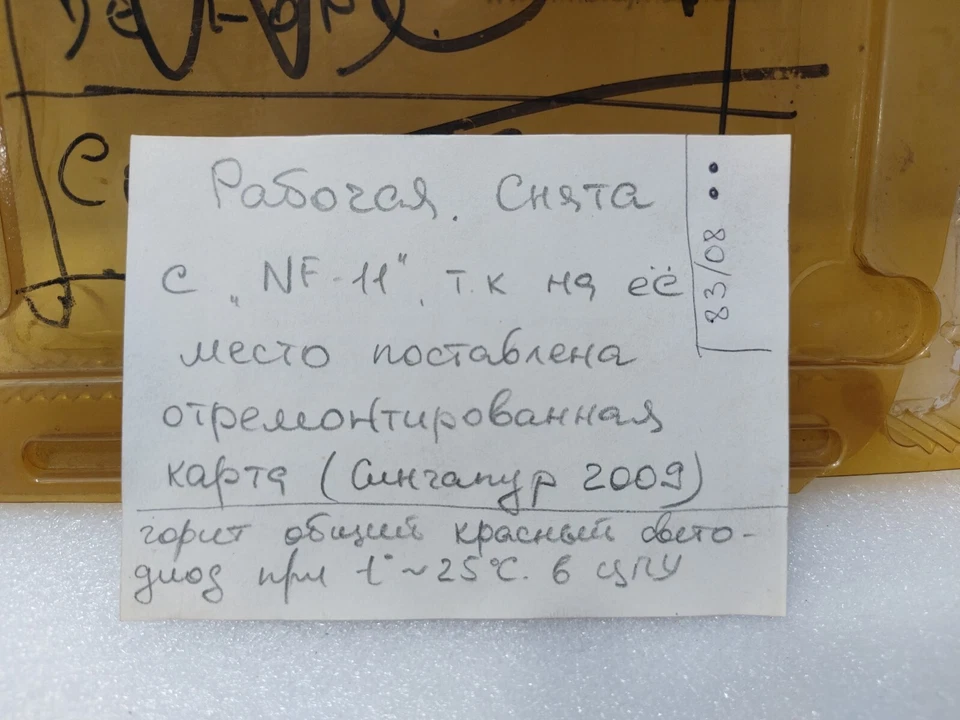 Рабочая. Снята
с „NF-11“, т.к на её
место поставлена
отремонтированная
карта (Сингапур 2009)
горит общий красный свето-
диод при t° ~25°C. в ЦПУ
83/08